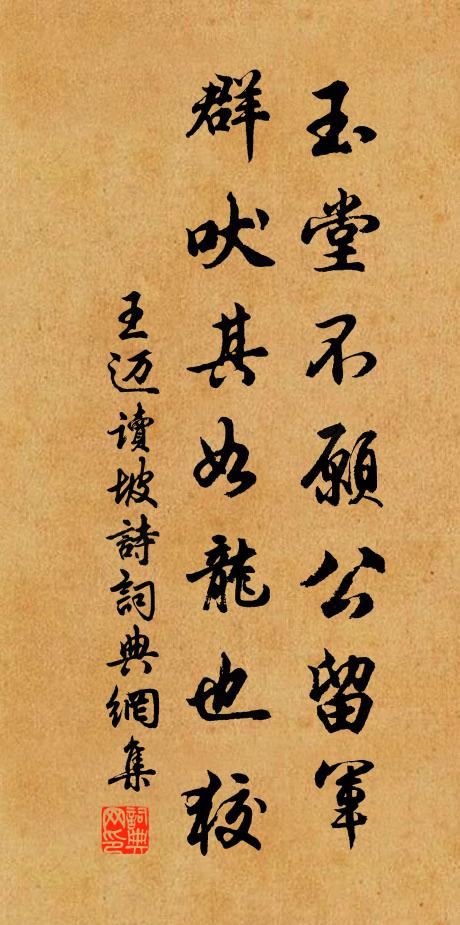 玉堂不願公留軍
群吠其如龍也狡
王迈讀坡詩詞典網集
詞典网印